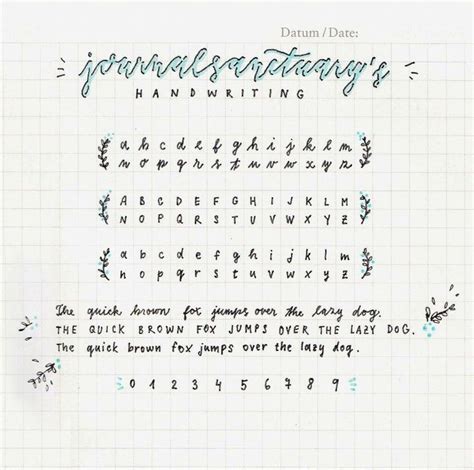 Datum / Date:
journalsanctuary's
HANDWRITING
a b c d e f g h i j k l m
n o p q r s t u v w x y z
A B C D E F G H I J K L M
N O P Q R S T U V W X Y Z
a b c d e f g h i j k l m
n o p q r s t u v w x y z
The quick brown fox jumps over the lazy dog.
THE QUICK BROWN FOX JUMPS OVER THE LAZY DOG.
The quick brown fox jumps over the lazy dog.
0 1 2 3 4 5 6 7 8 9